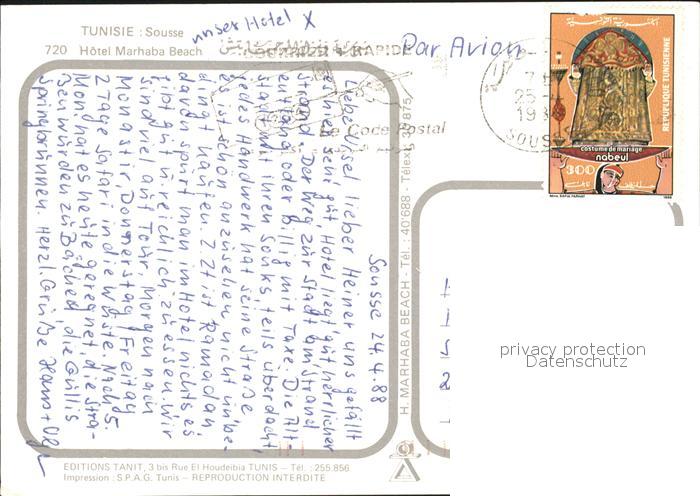 TUNISIE : Sousse
720 Hôtel Marhaba Beach
unser Hotel X
RAPIDE
Par Avion
Le Code Postal
25
SOUSSE
REPUBLIQUE TUNISIENNE
costume de mariage
nabeul
300
1988
Sousse 24.4.88
Liebe lieber Heiner uns gefällt
es hier sehr gut, Hotel liegt gut, herrlicher
Strand. Der Weg zur Stadt am Strand
entlang oder billig mit Taxe. Die Alt-
stadt mit ihren Souks, teils überdacht,
jedes Handwerk hat seine Straße
es ist schon anzusehen, nicht unbe-
dingt kaufen. Z Zt ist Ramadan
davon spürt man im Hotel nichts es
gibt gut u. reichlich zu essen. Wir
sind viel auf Tour. Morgen nach
Monastir, Donnerstag, Freitag
2 Tage Safari in die Wüste. Nach 5
Mon. hat es heute geregnet, die Stra-
ßen wurden zu Bächen, die Gullis
Springbrunnen. Herzl. Grüße Hans +
H. MARHABA BEACH - Tél. : 40'688 - Télex
EDITIONS TANIT, 3 bis Rue El Houdeibia TUNIS — Tél. : 255.856
Impression : S.P.A.G. Tunis — REPRODUCTION INTERDITE
privacy protection
Datenschutz